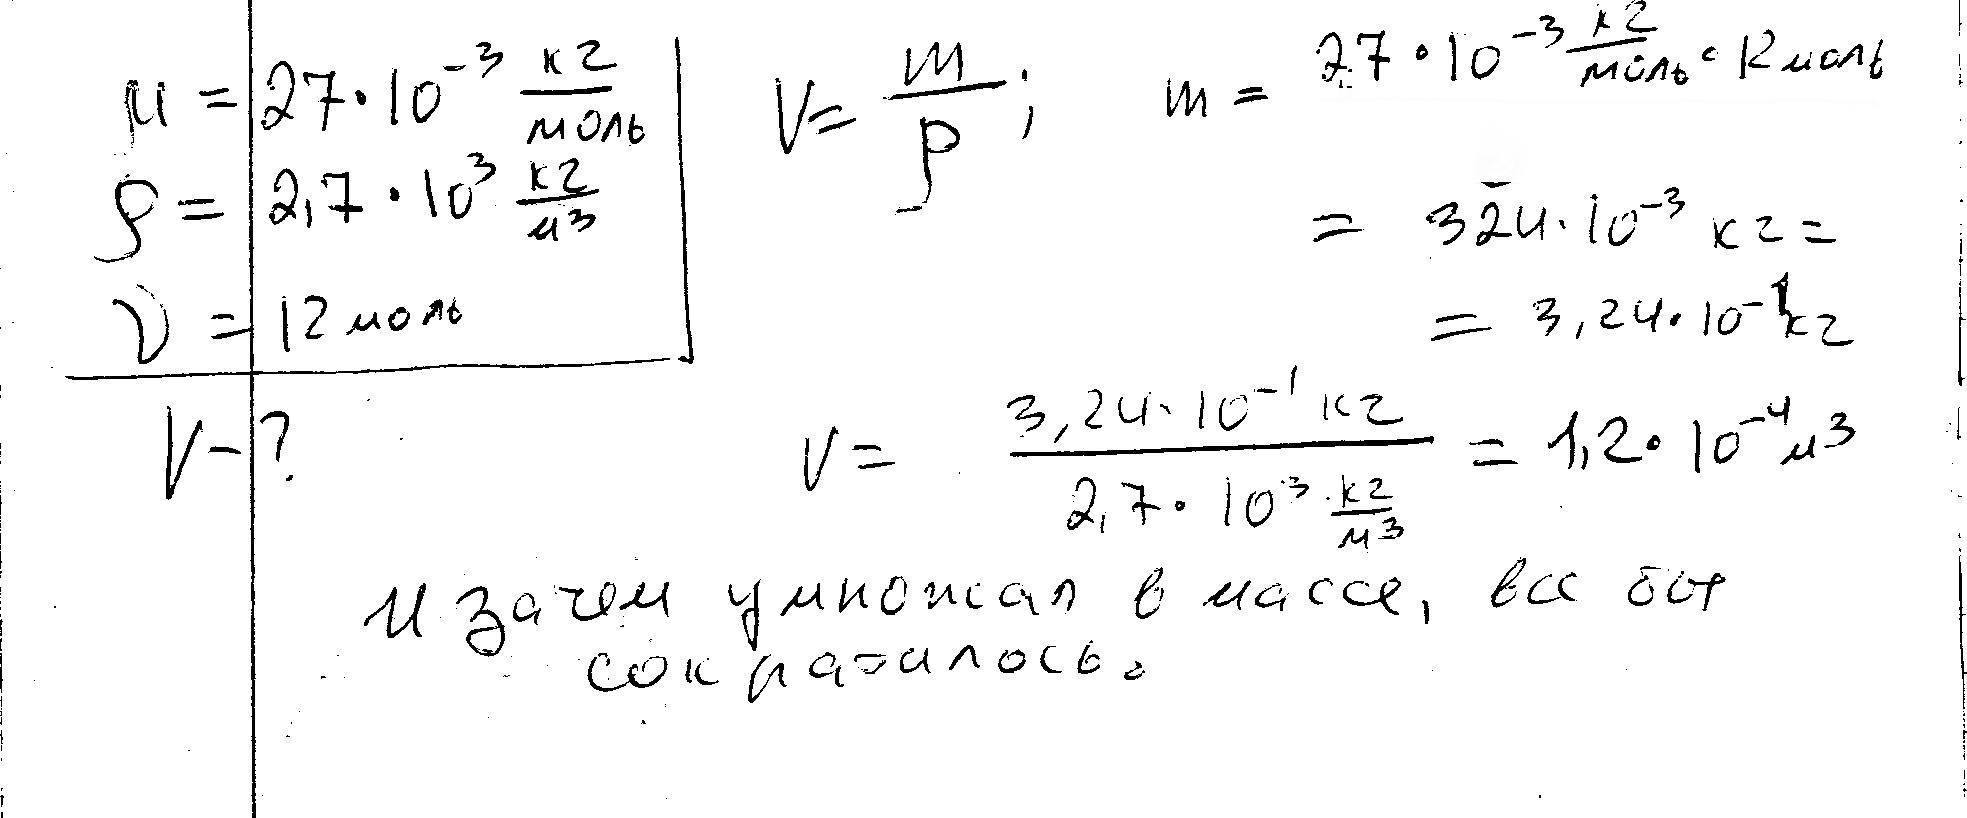 μ = 27·10⁻³ кг/моль
ρ = 2,7·10³ кг/м³
ν = 12 моль
V - ?
V = m/ρ; m = 27·10⁻³ кг/моль · 12 моль
= 324·10⁻³ кг =
= 3,24·10⁻¹ кг
V = 3,24·10⁻¹ кг / 2,7·10³ кг/м³ = 1,2·10⁻⁴ м³
И зачем умножал в массе, все бы
сократилось.